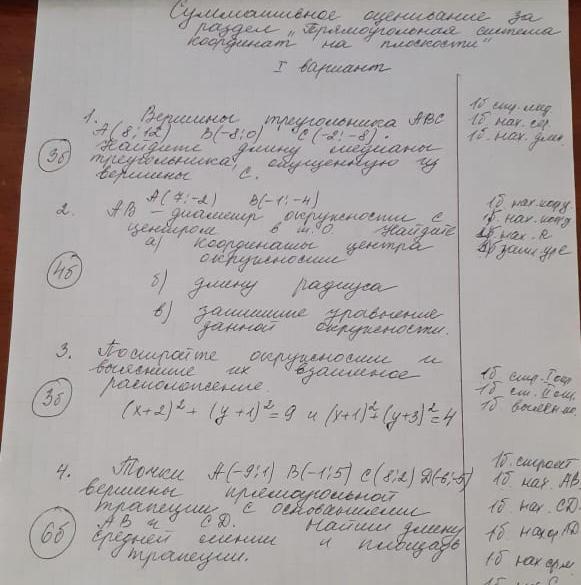 Суммативное оценивание за
раздел „Прямоугольная система
координат на плоскости"
I вариант
1. Вершины треугольника ABC
A(8;12) B(-8;0) C(-2;-8).
Найдите длину медианы
треугольника, опущенную из
вершины C.
3б
A(7;-2) B(-1;-4)
2. AB – диаметр окружности с
центром в т.O. Найдите
а) координаты центра
окружности
4б
б) длину радиуса
в) запишите уравнение
данной окружности.
3. Постройте окружности и
выясните их взаимное
расположение.
3б
(x+2)²+(y+1)²=9 и (x+1)²+(y+3)²=4
4. Точки A(-9;1) B(-1;5) C(8;2) D(-6;-5)
вершины прямоугольной
трапеции с основаниями
AB и CD. Найти длину
средней линии и площадь
трапеции.
6б
1б стр. мед.
1б нах. сер.
1б. нах. длин.
1б нах. коор.
1б. нах. коор
нах. R
запис. ур-е
1б стр. I окр.
1б ст. II окр.
1б выяснение.
1б. строит
1б нах. AB
1б нах. CD.
1б нахор AD
1б нах ср.л